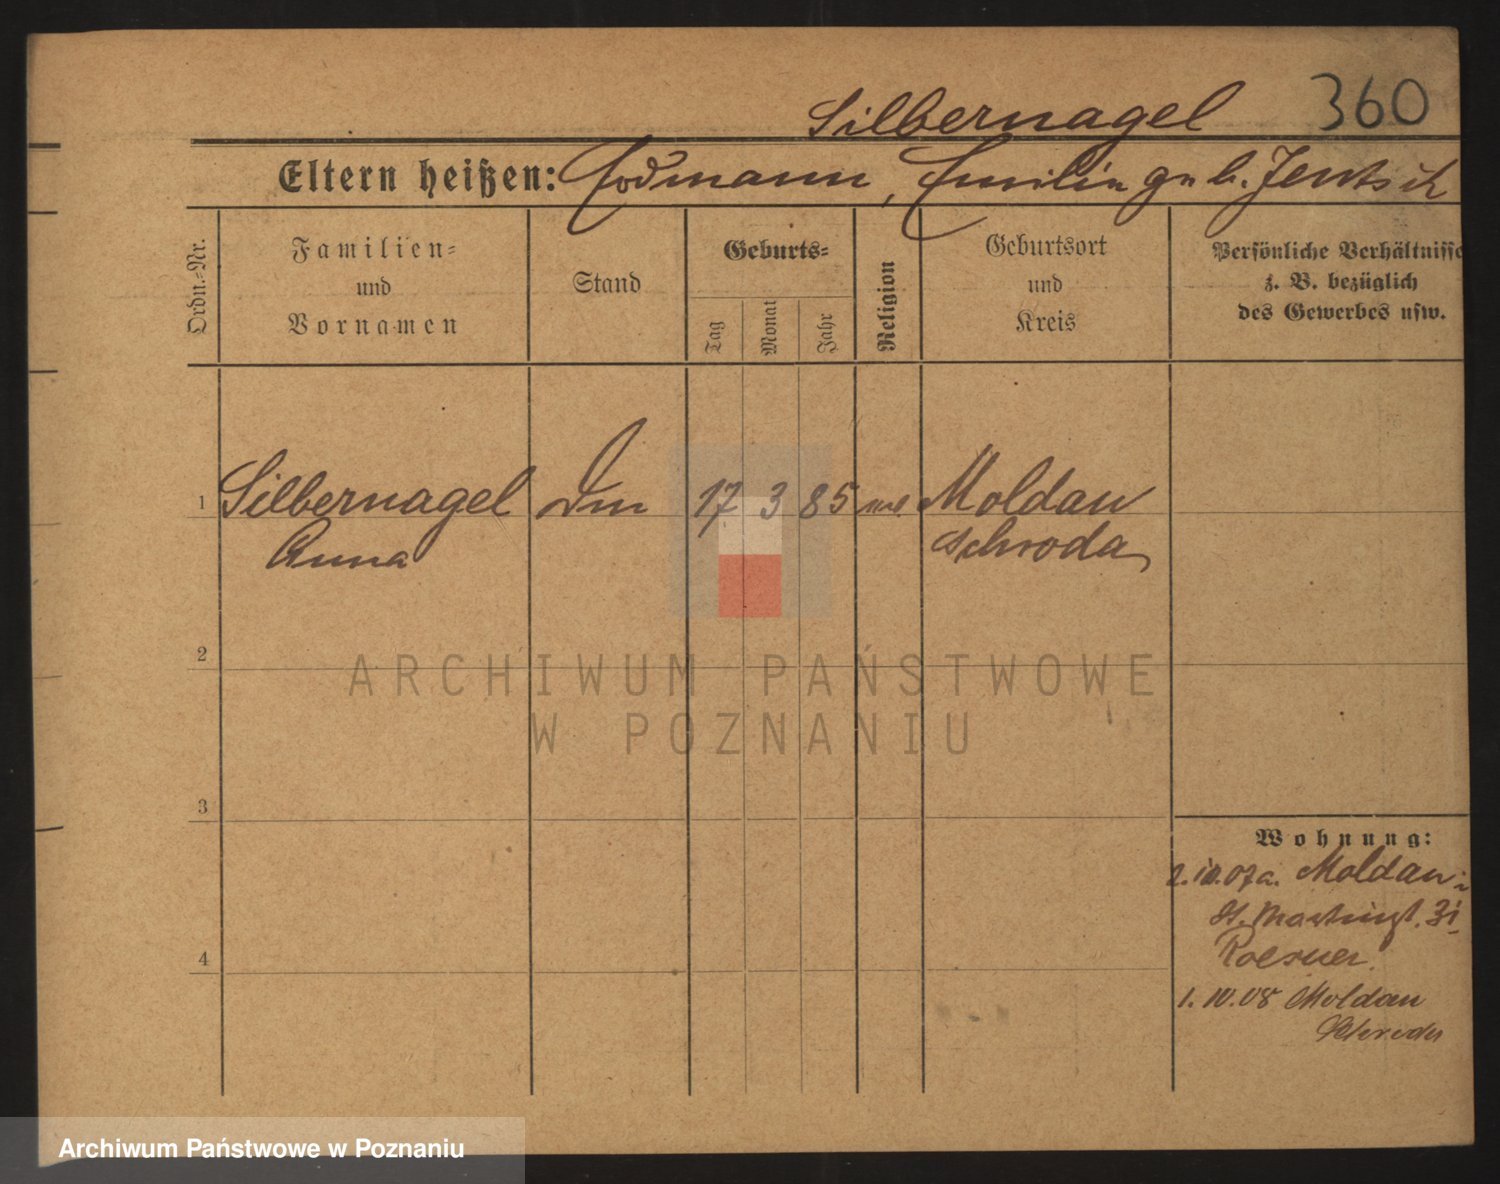 Silbernagel 360
Eltern heißen: Erdmann, Emilie geb. Jentsch
Ordn.-Nr.
Familien-
und
Vornamen
Stand
Geburts-
Tag
Monat
Jahr
Religion
Geburtsort
und
Kreis
Persönliche Verhältnisse
z. B. bezüglich
des Gewerbes usw.
1 Silbernagel 17 3 85 Moldau
Anna Schroda
2
ARCHIWUM PAŃSTWOWE
W POZNANIU
3
Wohnung:
2.10.07 a. Moldau
St. Martinst. 31
Roesner.
4
1.10.08 Moldau
Schroda
Archiwum Państwowe w Poznaniu